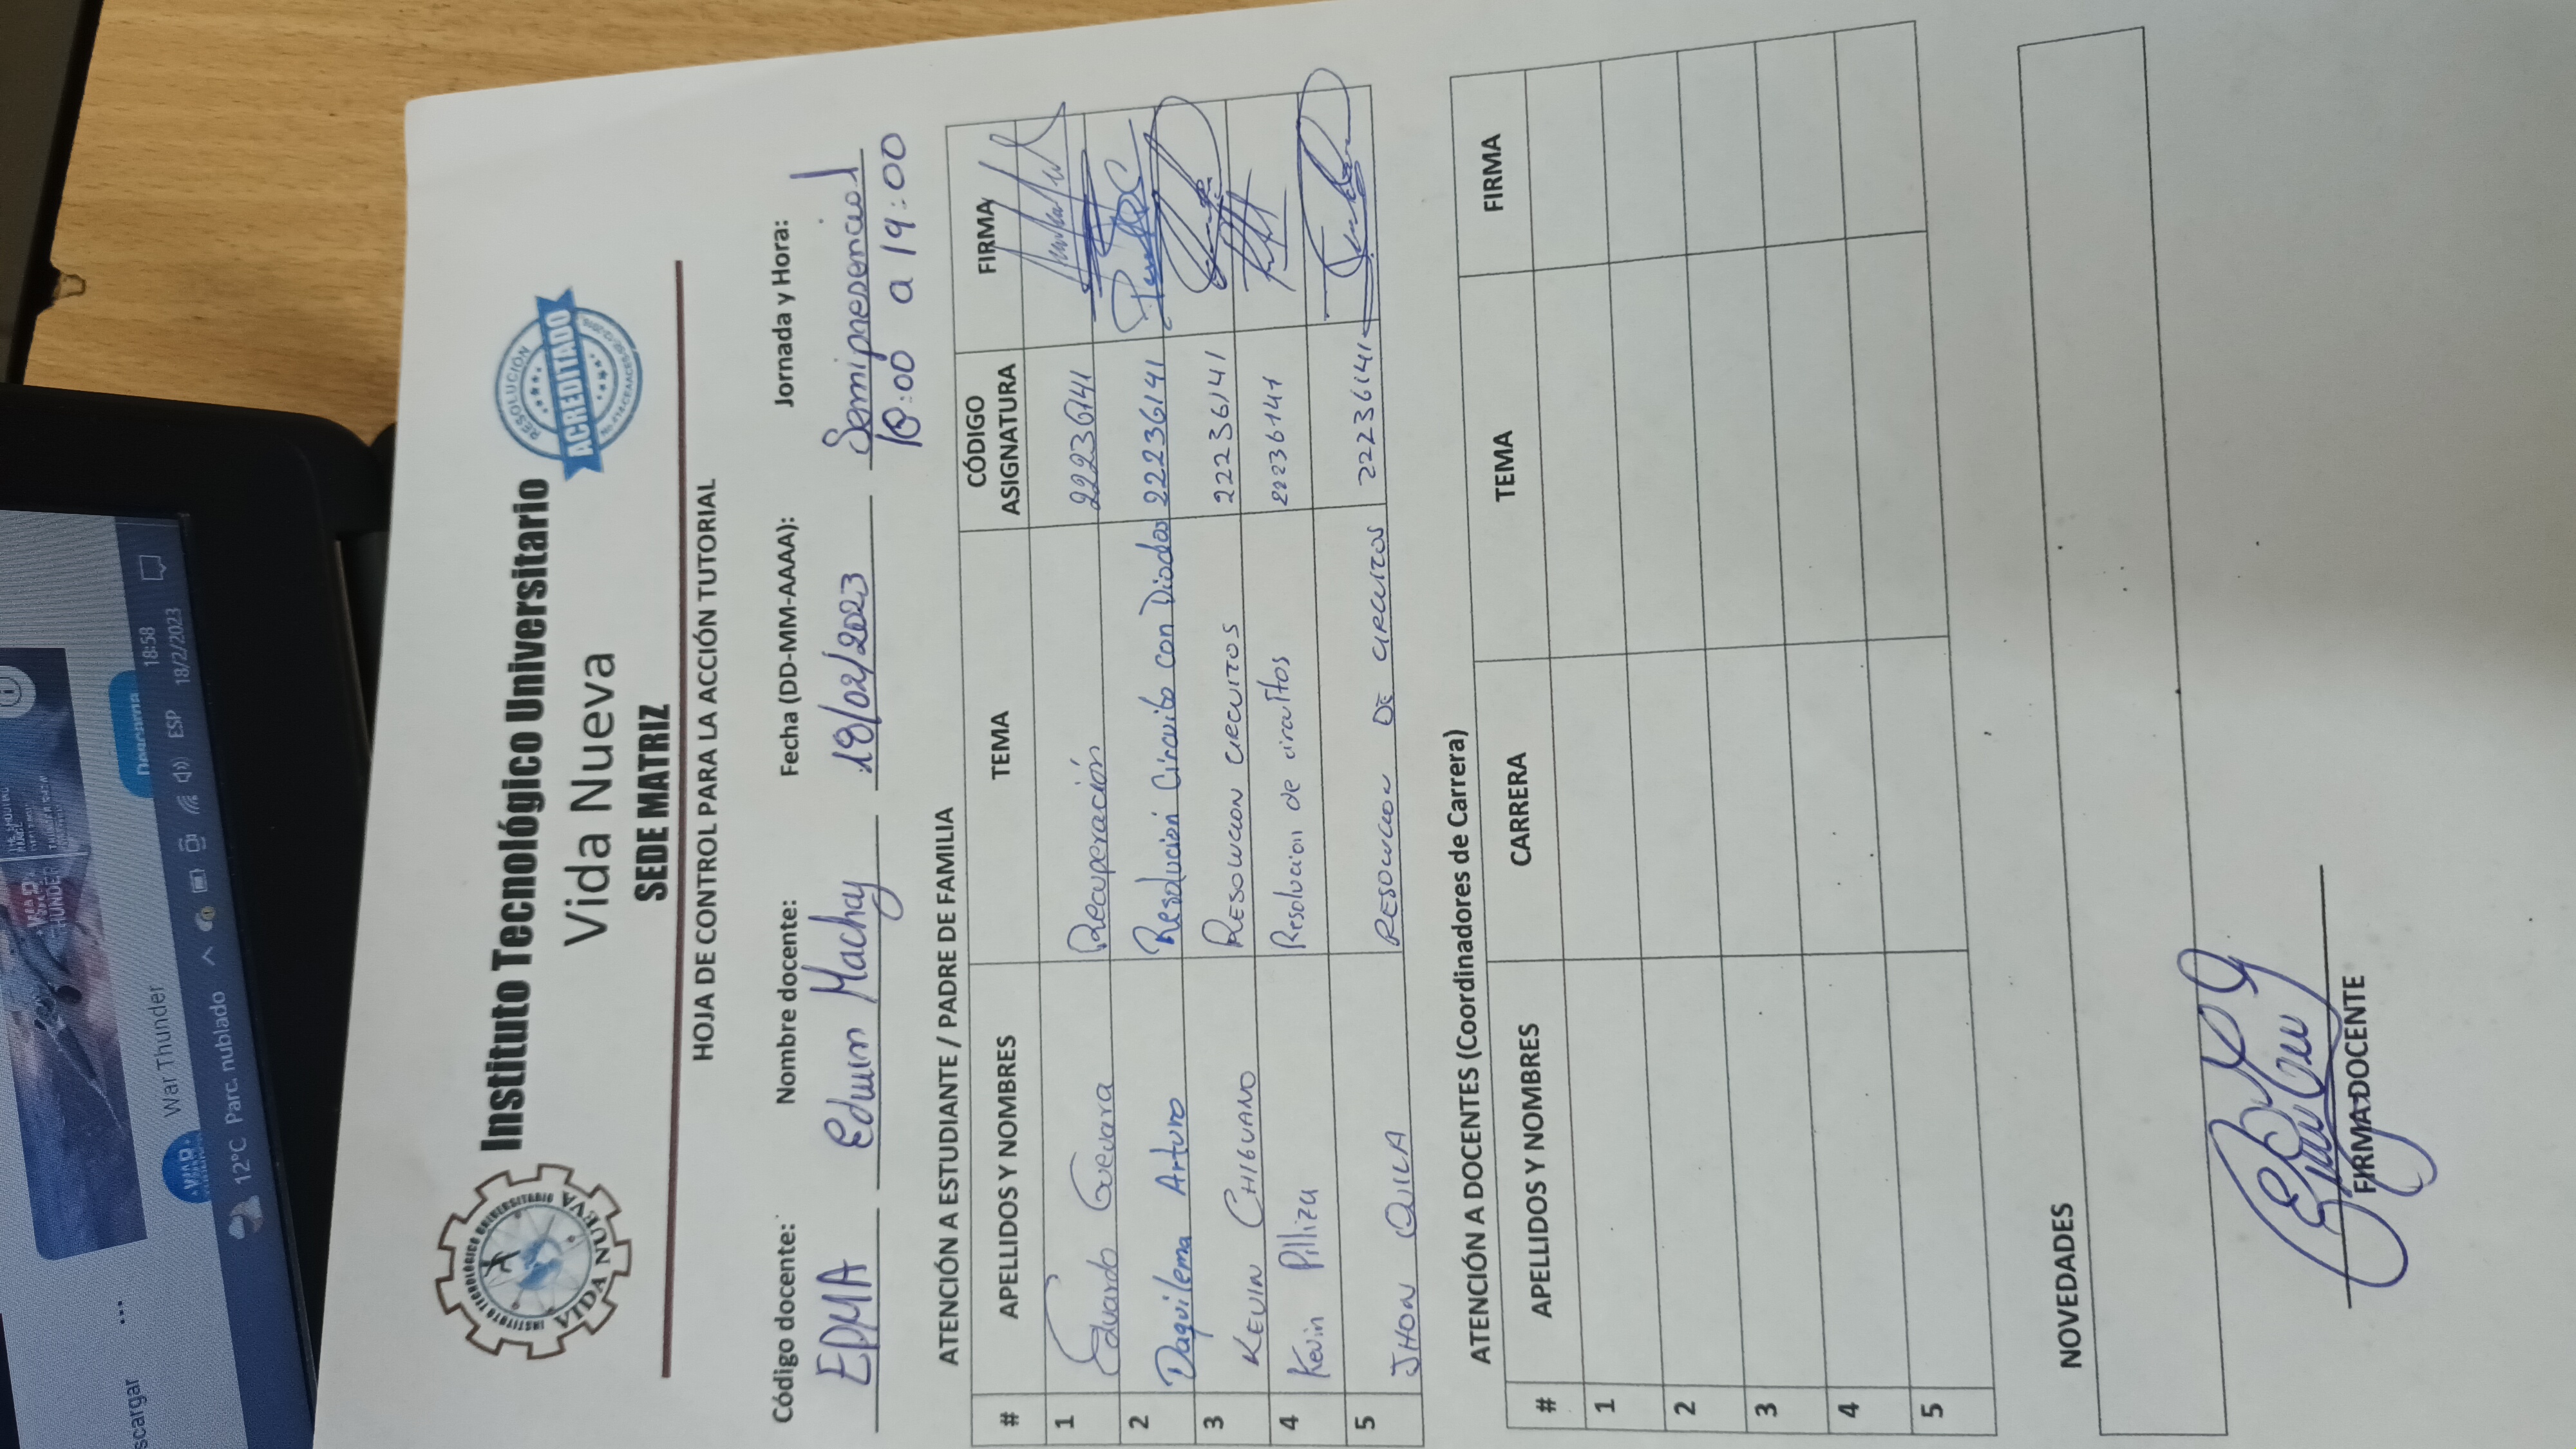 WAR
THUNDER
scargar ...
War Thunder
Descarga
12°C Parc. nublado
ESP
18:58
18/2/2023
INSTITUTO TECNOLÓGICO UNIVERSITARIO
VIDA NUEVA
Instituto Tecnológico Universitario
Vida Nueva
SEDE MATRIZ
RESOLUCIÓN
ACREDITADO
HOJA DE CONTROL PARA LA ACCIÓN TUTORIAL
Código docente: Nombre docente: Fecha (DD-MM-AAAA): Jornada y Hora:
EPMA Edwin Machay 18/02/2023 Semipresencial
18:00 a 19:00
ATENCIÓN A ESTUDIANTE / PADRE DE FAMILIA
# APELLIDOS Y NOMBRES TEMA CÓDIGO ASIGNATURA FIRMA
1 Eduardo Guevara Recuperación 22236141
2 Daquilema Arturo Resolución Circuito con Diodos 22236141
3 KEVIN CHIGUANO RESOLUCION CIRCUITOS 22236141
4 Kevin Pilliza Resolucion de circuitos 22236141
5 JHON QUILA RESOLUCION DE CIRCUITOS 22236141
ATENCIÓN A DOCENTES (Coordinadores de Carrera)
# APELLIDOS Y NOMBRES CARRERA TEMA FIRMA
1
2
3
4
5
NOVEDADES
FIRMA DOCENTE